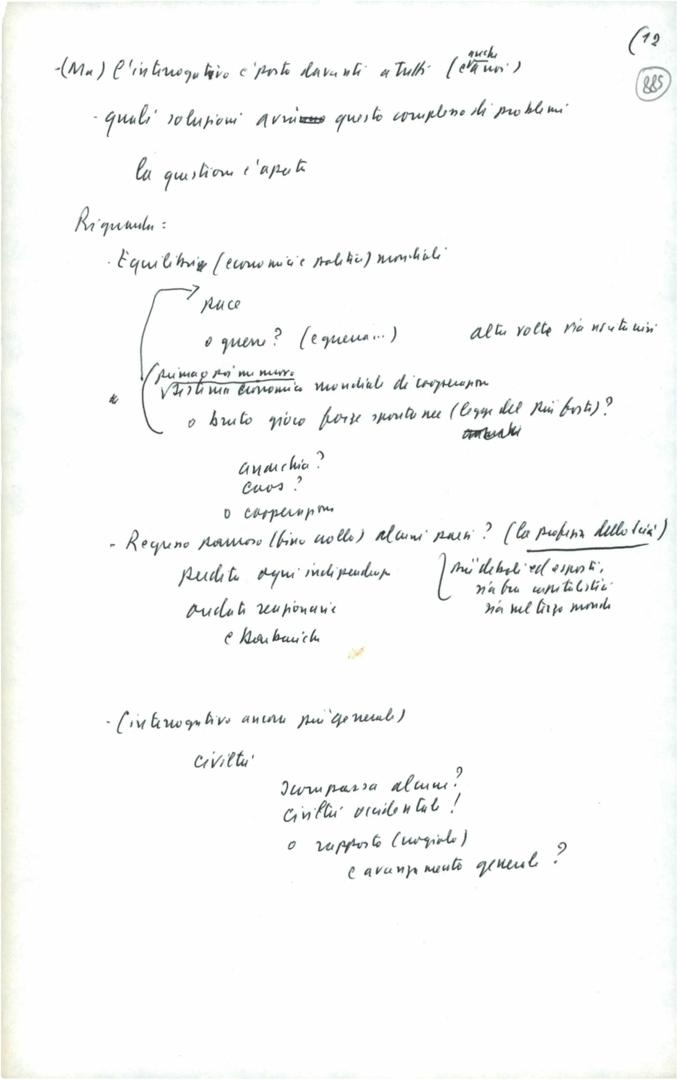 (12
885
-(Ma) l'interrogativo è posto davanti a tutti (anche a noi)
- quali soluzioni avrà questo complesso di problemi
la questione è aperta
Riguarda:
- Equilibri (economici e politici) mondiali
pace
o guerre? (e guerra...)
altre volte sia
prima o poi un nuovo
* sistema economico mondiale di cooperazione
o bruto gioco forze spontanee (legge del più forte)?
anarchia?
caos?
o cooperazione
- Regresso pauroso (fino crollo) alcuni paesi? (la profezia della
perdita ogni indipendenza
più deboli ed esposti,
sia tra capitalistici
ondate reazionarie
sia nel terzo mondo
e barbariche
- (interrogativo ancora più generale)
civiltà
scomparsa alcune?
civiltà occidentale!
o rapporto
e avanzamento generale?